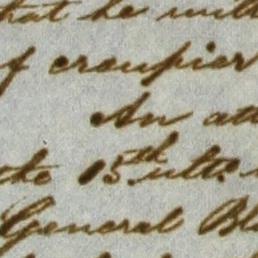 that he with
of croupier
An att
the 15th ulto.
General Bl